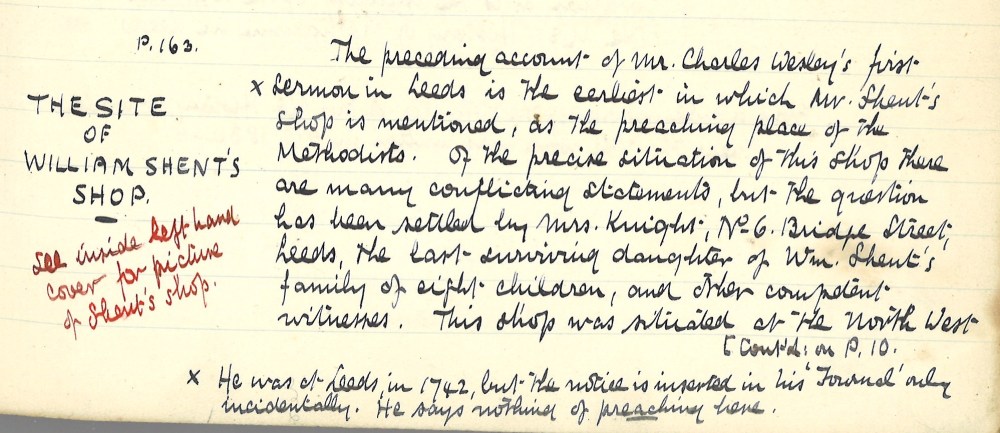 P. 163.
THE SITE
OF
WILLIAM SHENT'S
SHOP.
see inside left hand
cover for picture
of Shent's shop.
The preceding account of Mr. Charles Wesley's first
x Sermon in Leeds is the earliest in which Mr. Shent's
Shop is mentioned, as the preaching place of the
Methodists. Of the precise situation of this shop there
are many conflicting statements, but the question
has been settled by Mrs. Knight, No 6. Bridge Street,
Leeds, the last surviving daughter of Wm. Shent's
family of eight children, and other competent
witnesses. This shop was situated at the North West
[Contd: on P. 10.
x He was at Leeds, in 1742, but the notice is inserted in his 'Journal' only
incidentally. He says nothing of preaching here.